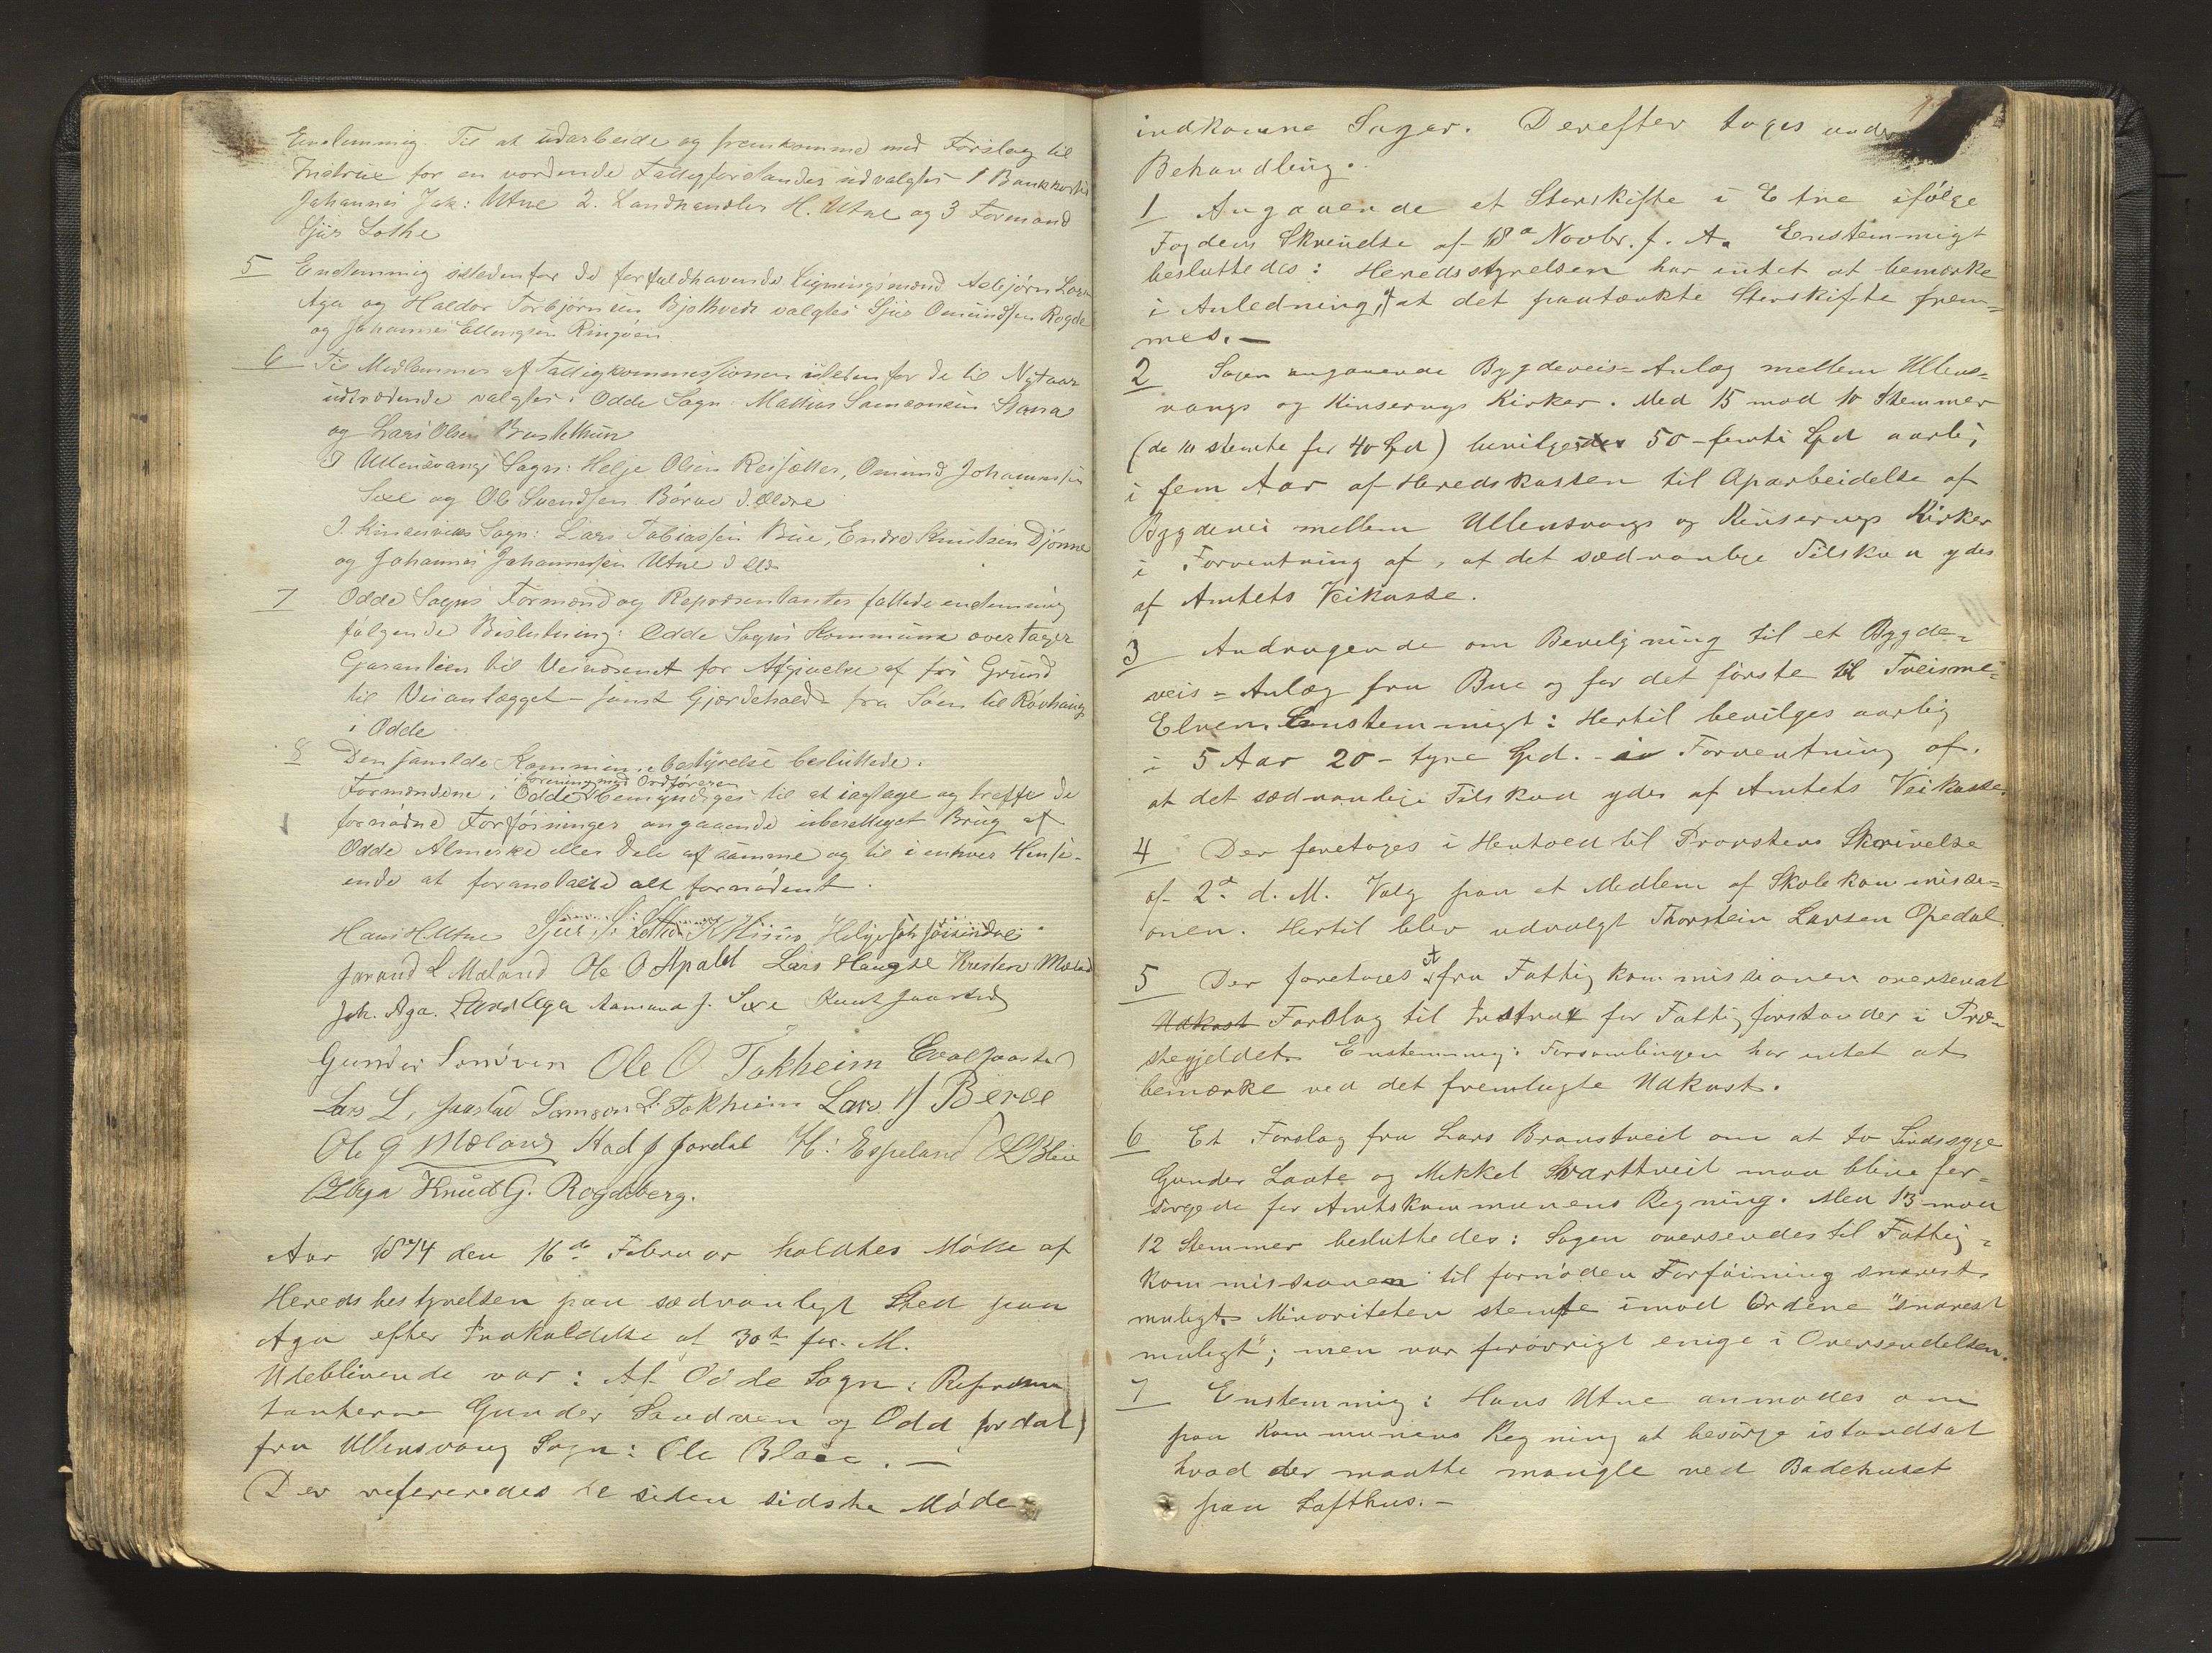 Enstemmig. Til at udarbeide og fremkomme med Forslag til
Instrux for en vordende Fattigforstander udvalgtes 1
Johannes Joh: Utne 2. Landhandler H. Utne og 3 Formand
Lothe
5 Enstemmig istedenfor de forfaldhavende Ligningsmænd Asbjørn
Aga og Haldor Torbjørnsen valgtes Sjur Omundsen
og Johannes Ellingsen Ringøen
6 Til Medlemmer af Fattigkommissionen istedenfor de til Nytaar
udtrædende valgtes i Odde Sogn: Mathias Samsonsen
og Lars Olsen
I Ullensvangs Sogn: Helje Olsen Reisæter, Omund Johannessen
Sexe og Ole Svendsen Børve d. Eldre
I Kinserviks Sogn: Lars Tobiassen Bue, Endre Knutsen Djønne
og Johannes Johannessen Utne d Eld
7 Odde Sogns Formænd og Repræsentanter fattede enstemmig
følgende Beslutning: Odde Sogns Kommune overtager
Garantien til Veivæsenet for Afgivelse af fri Grund
til Veianlægget samt Gjærdehold fra til
i Odde
8 Den samlede Kommunebestyrelse besluttede.
i forening med Ordføreren
Formændene i Odde bemyndiges til at iagtage og treffe de
fornødne Forføininger angaaende uberettiget Brug af
Odde Alminke eller Dele af samme og til i enhver Hense-
ende at foranstalte alt fornødent.
Hans H Utne Sjur S: Lothe Helje
Jarand L Mæland Ole O Apald Lars Haugse Kristen Mæland
Joh. Aga. Aga Aamund J. Sexe Knut Jaastad
Gunder Sandven Ole O Tokheim Jaastad
Lars L, Jaastad Samson L. Tokheim Lars Børve
Ole G Mæland J Jordal H: Espeland Bleie
Aga Knud G. Rogdeberg.
Aar 1874 den 16de Februar holdtes Møde af
Heredsbestyrelsen paa sædvanligt Sted paa
Aga efter Indkaldelse af 30te for. M.
Udeblivende var: Af Odde Sogn: Repræsen
tanterne Gunder Sandven og Odd Jordal
fra Ullensvang Sogn: Ole Bleie. —
Der refereredes de siden sidste Møde
indkomne Sager. Derefter toges under
Behandling.
1 Angaaende et Storskifte i Etne ifølge
Fogdens Skrivelse af 18de Novbr. f. A. Enstemmigt
besluttedes: Heredsstyrelsen har intet at bemærke
i Anledning af at det paatænkte Storskifte frem=
mes. —
2 Sagen angaaende Bygdeveis=Anlæg mellem Ullens=
vangs og Kinservigs Kirker. Med 15 mod 10 Stemmer
(de 10 stemte for 40 Spd) bevilgedes 50 - femti Spd aarlig
i fem Aar af Heredskassen til Oparbeidelse af
Bygdevei mellem Ullensvangs og Kinservigs Kirker
i Forventning af, at det sædvanlige Tilskud ydes
af Amtets Veikasse.
3 Andragende om Bevilgning til et Bygde=
veis=Anlæg fra Bue og for det første til Tveisme=
Elven. Enstemmigt: Hertil bevilges aarlig
i 5 Aar 20 - tyve Spd. - i Forventning af
at det sædvanlige Tilskud ydes af Amtets Veikasse.
4 Der foretages i Henhold til Provstens Skrivelse
af 2de d. M. Valg paa et Medlem af Skolekommissi=
onen. Hertil blev udvalgt Thorstein Larsen Opedal.
5 Der foretoges et fra Fattigkommissionen oversendt
Udkast Forslag til Instrux for Fattigforstander i Præ=
stegjeldet. Enstemmig: Forsamlingen har intet at
bemærke ved det fremlagte Udkast.
6 Et Forslag fra Lars Branstveit om at to Sindssyge
Gunder Laate og Mikkel Svarttveit maa blive for=
sørgede for Amtskommunens Regning. Med 13 mod
12 Stemmer besluttedes: Sagen oversendes til Fattig=
kommissionen til fornøden Forføining snarest
muligt. Minoriteten stemte imod Ordene "snarest
muligt"; men var forøvrigt enige i Oversendelsen.
7 Enstemmig: Hans Utne anmodes om
paa Kommunens Regning at besørge istandsat
hvad der maatte mangle ved Badehuset
paa Lofthus. —